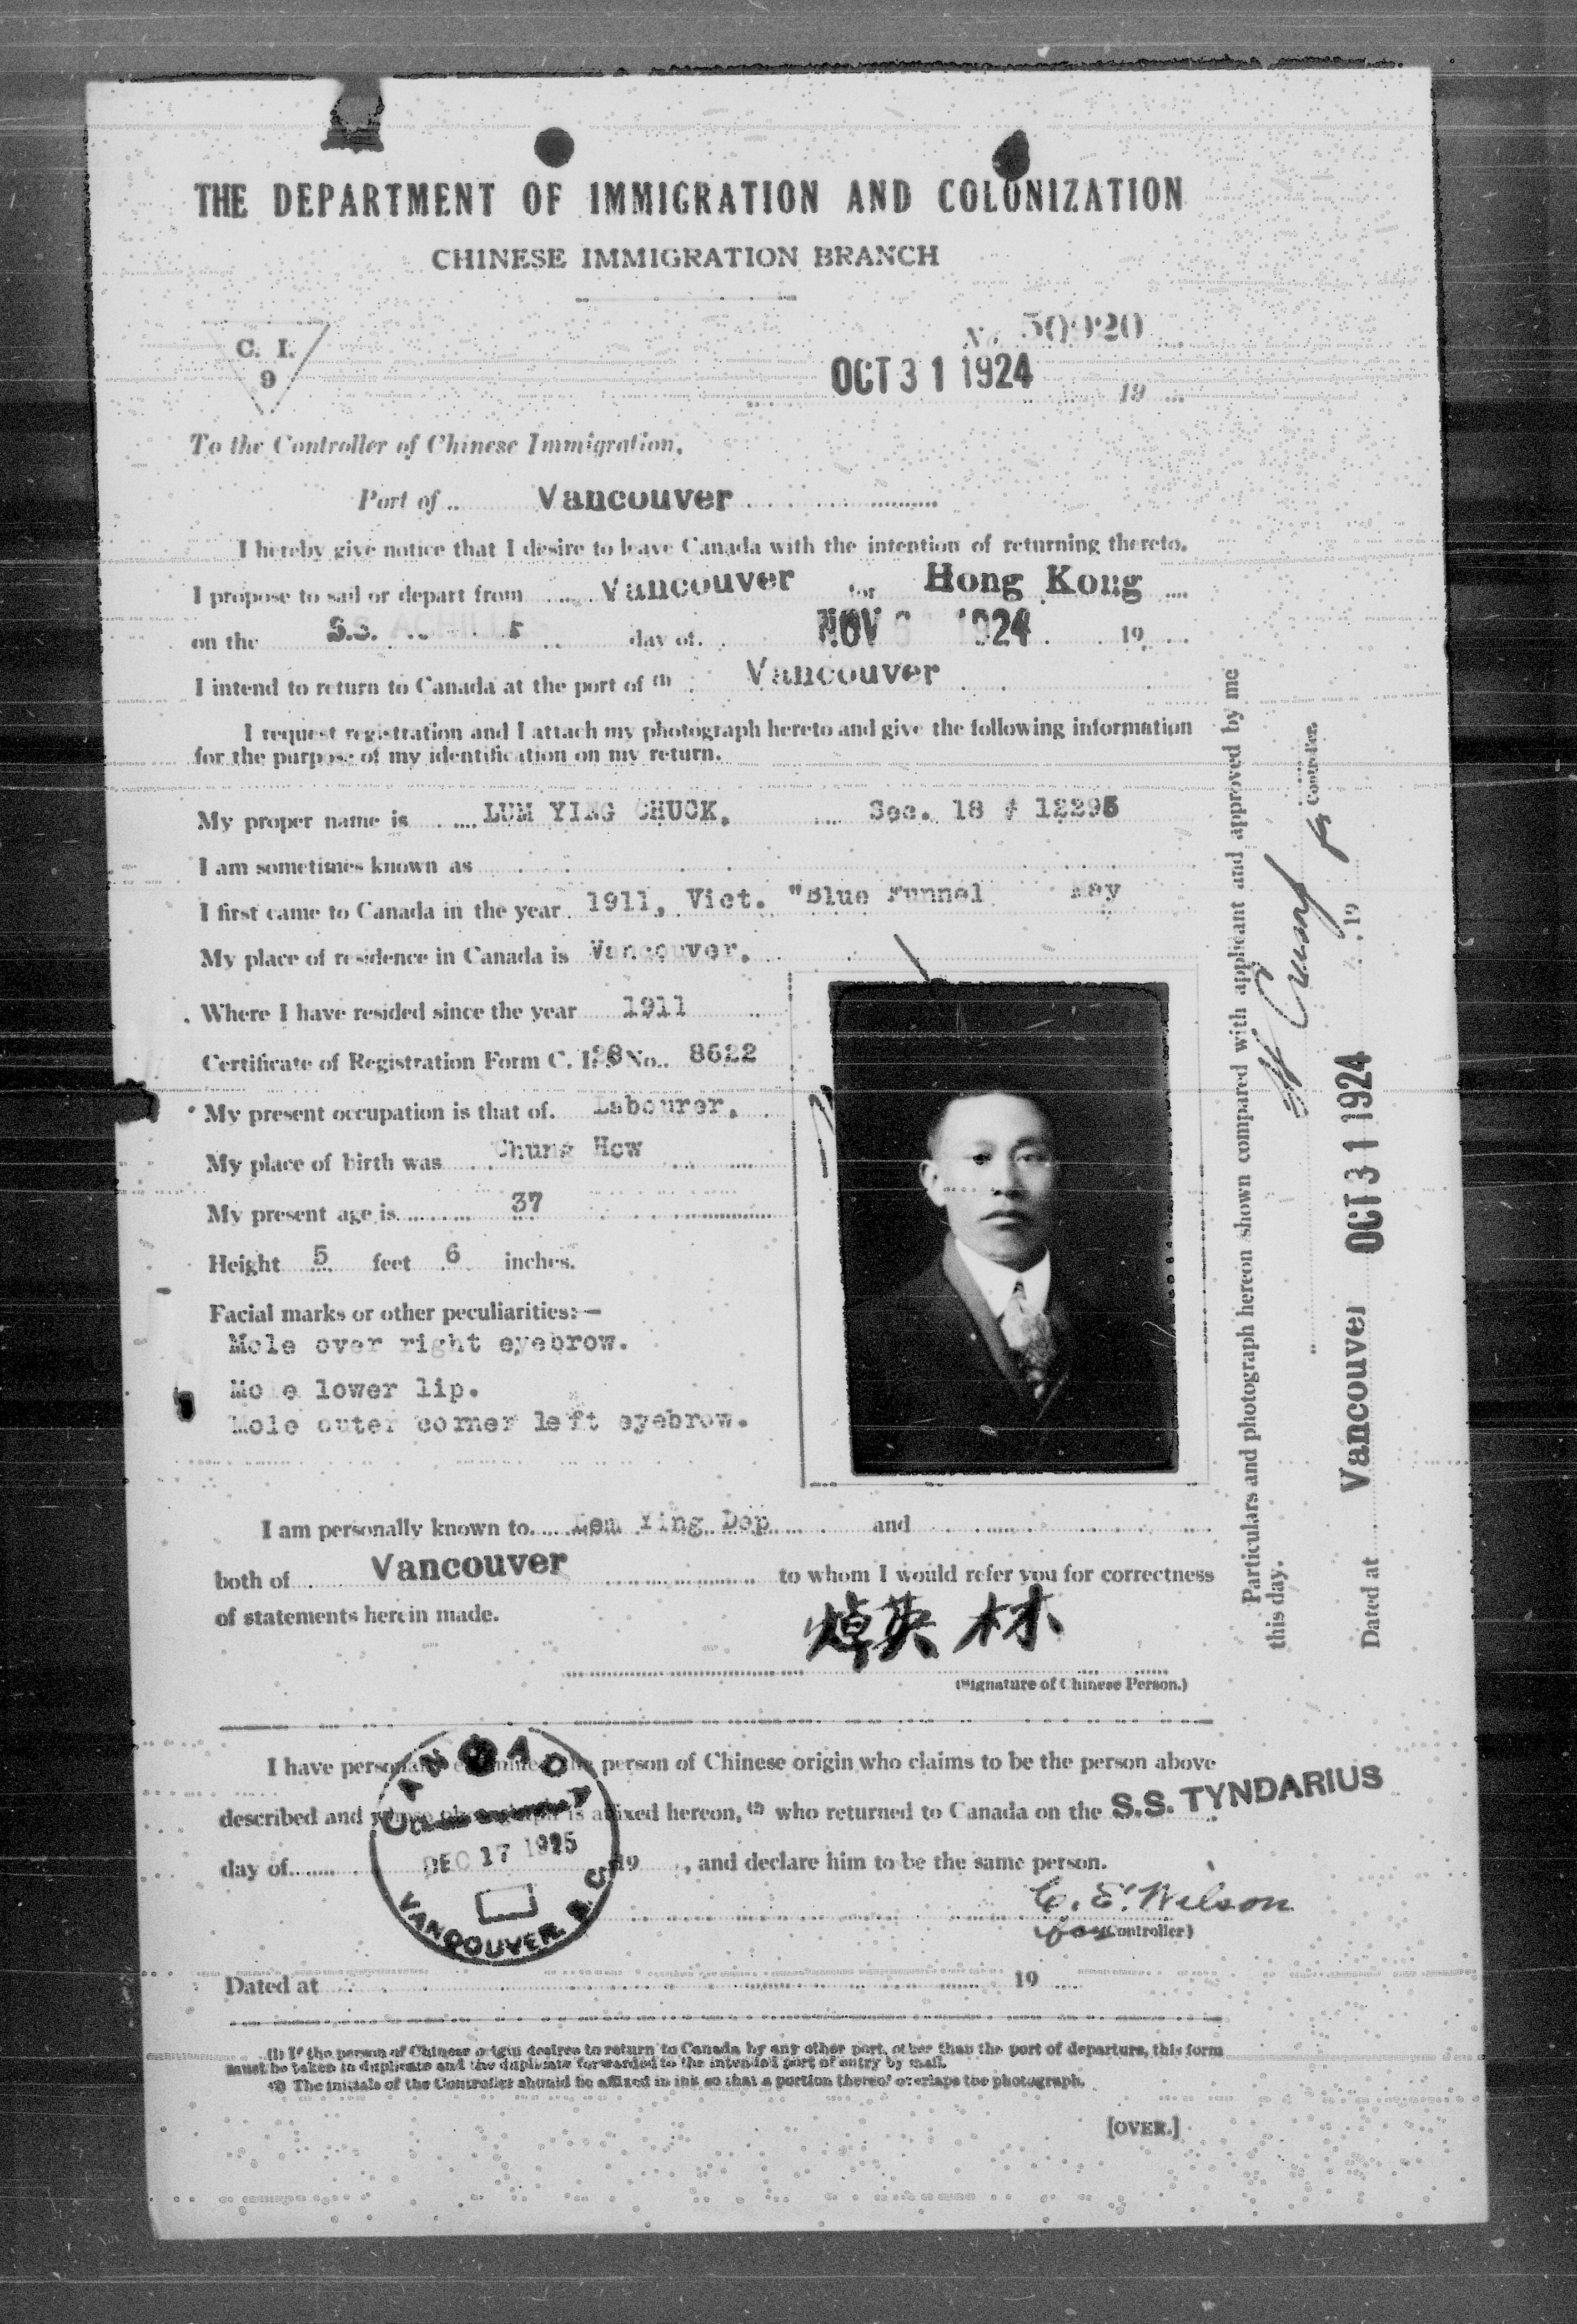 THE DEPARTMENT OF IMMIGRATION AND COLONIZATION
CHINESE IMMIGRATION BRANCH
C. I.
9
No. 50920
OCT 31 1924 19
To the Controller of Chinese Immigration,
Port of Vancouver
I hereby give notice that I desire to leave Canada with the intention of returning thereto.
I propose to sail or depart from Vancouver for Hong Kong
on the S.S. ACHILLES day of NOV 1924 19
I intend to return to Canada at the port of (1) Vancouver
I request registration and I attach my photograph hereto and give the following information
for the purpose of my identification on my return.
My proper name is LUM YING CHUCK, Sec. 18 # 12295
I am sometimes known as
I first came to Canada in the year 1911, Vict. "Blue Funnel May
My place of residence in Canada is Vancouver.
Where I have resided since the year 1911
Certificate of Registration Form C. I. 28 No. 8622
My present occupation is that of Labourer.
My place of birth was Chung How
My present age is 37
Height 5 feet 6 inches.
Facial marks or other peculiarities:—
Mole over right eyebrow.
Mole lower lip.
Mole outer corner left eyebrow.
I am personally known to Lem Ying Dep and
both of Vancouver to whom I would refer you for correctness
of statements herein made.
焯英林
(Signature of Chinese Person.)
Particulars and photograph hereon shown compared with applicant and approved by me
this day.
Controller.
Dated at Vancouver OCT 31 1924 19
I have personally examined the person of Chinese origin who claims to be the person above
described and whose photograph is affixed hereon, (2) who returned to Canada on the S.S. TYNDARIUS
day of 19 , and declare him to be the same person.
CANADA
DEC 17 1925
VANCOUVER B.C.
C. E. Wilson
for (Controller)
Dated at 19
(1) If the person of Chinese origin desires to return to Canada by any other port, other than the port of departure, this form
must be taken in duplicate and the duplicate forwarded to the intended port of entry by mail.
(2) The initials of the Controller should be affixed in ink so that a portion thereof overlaps the photograph.
[OVER.]